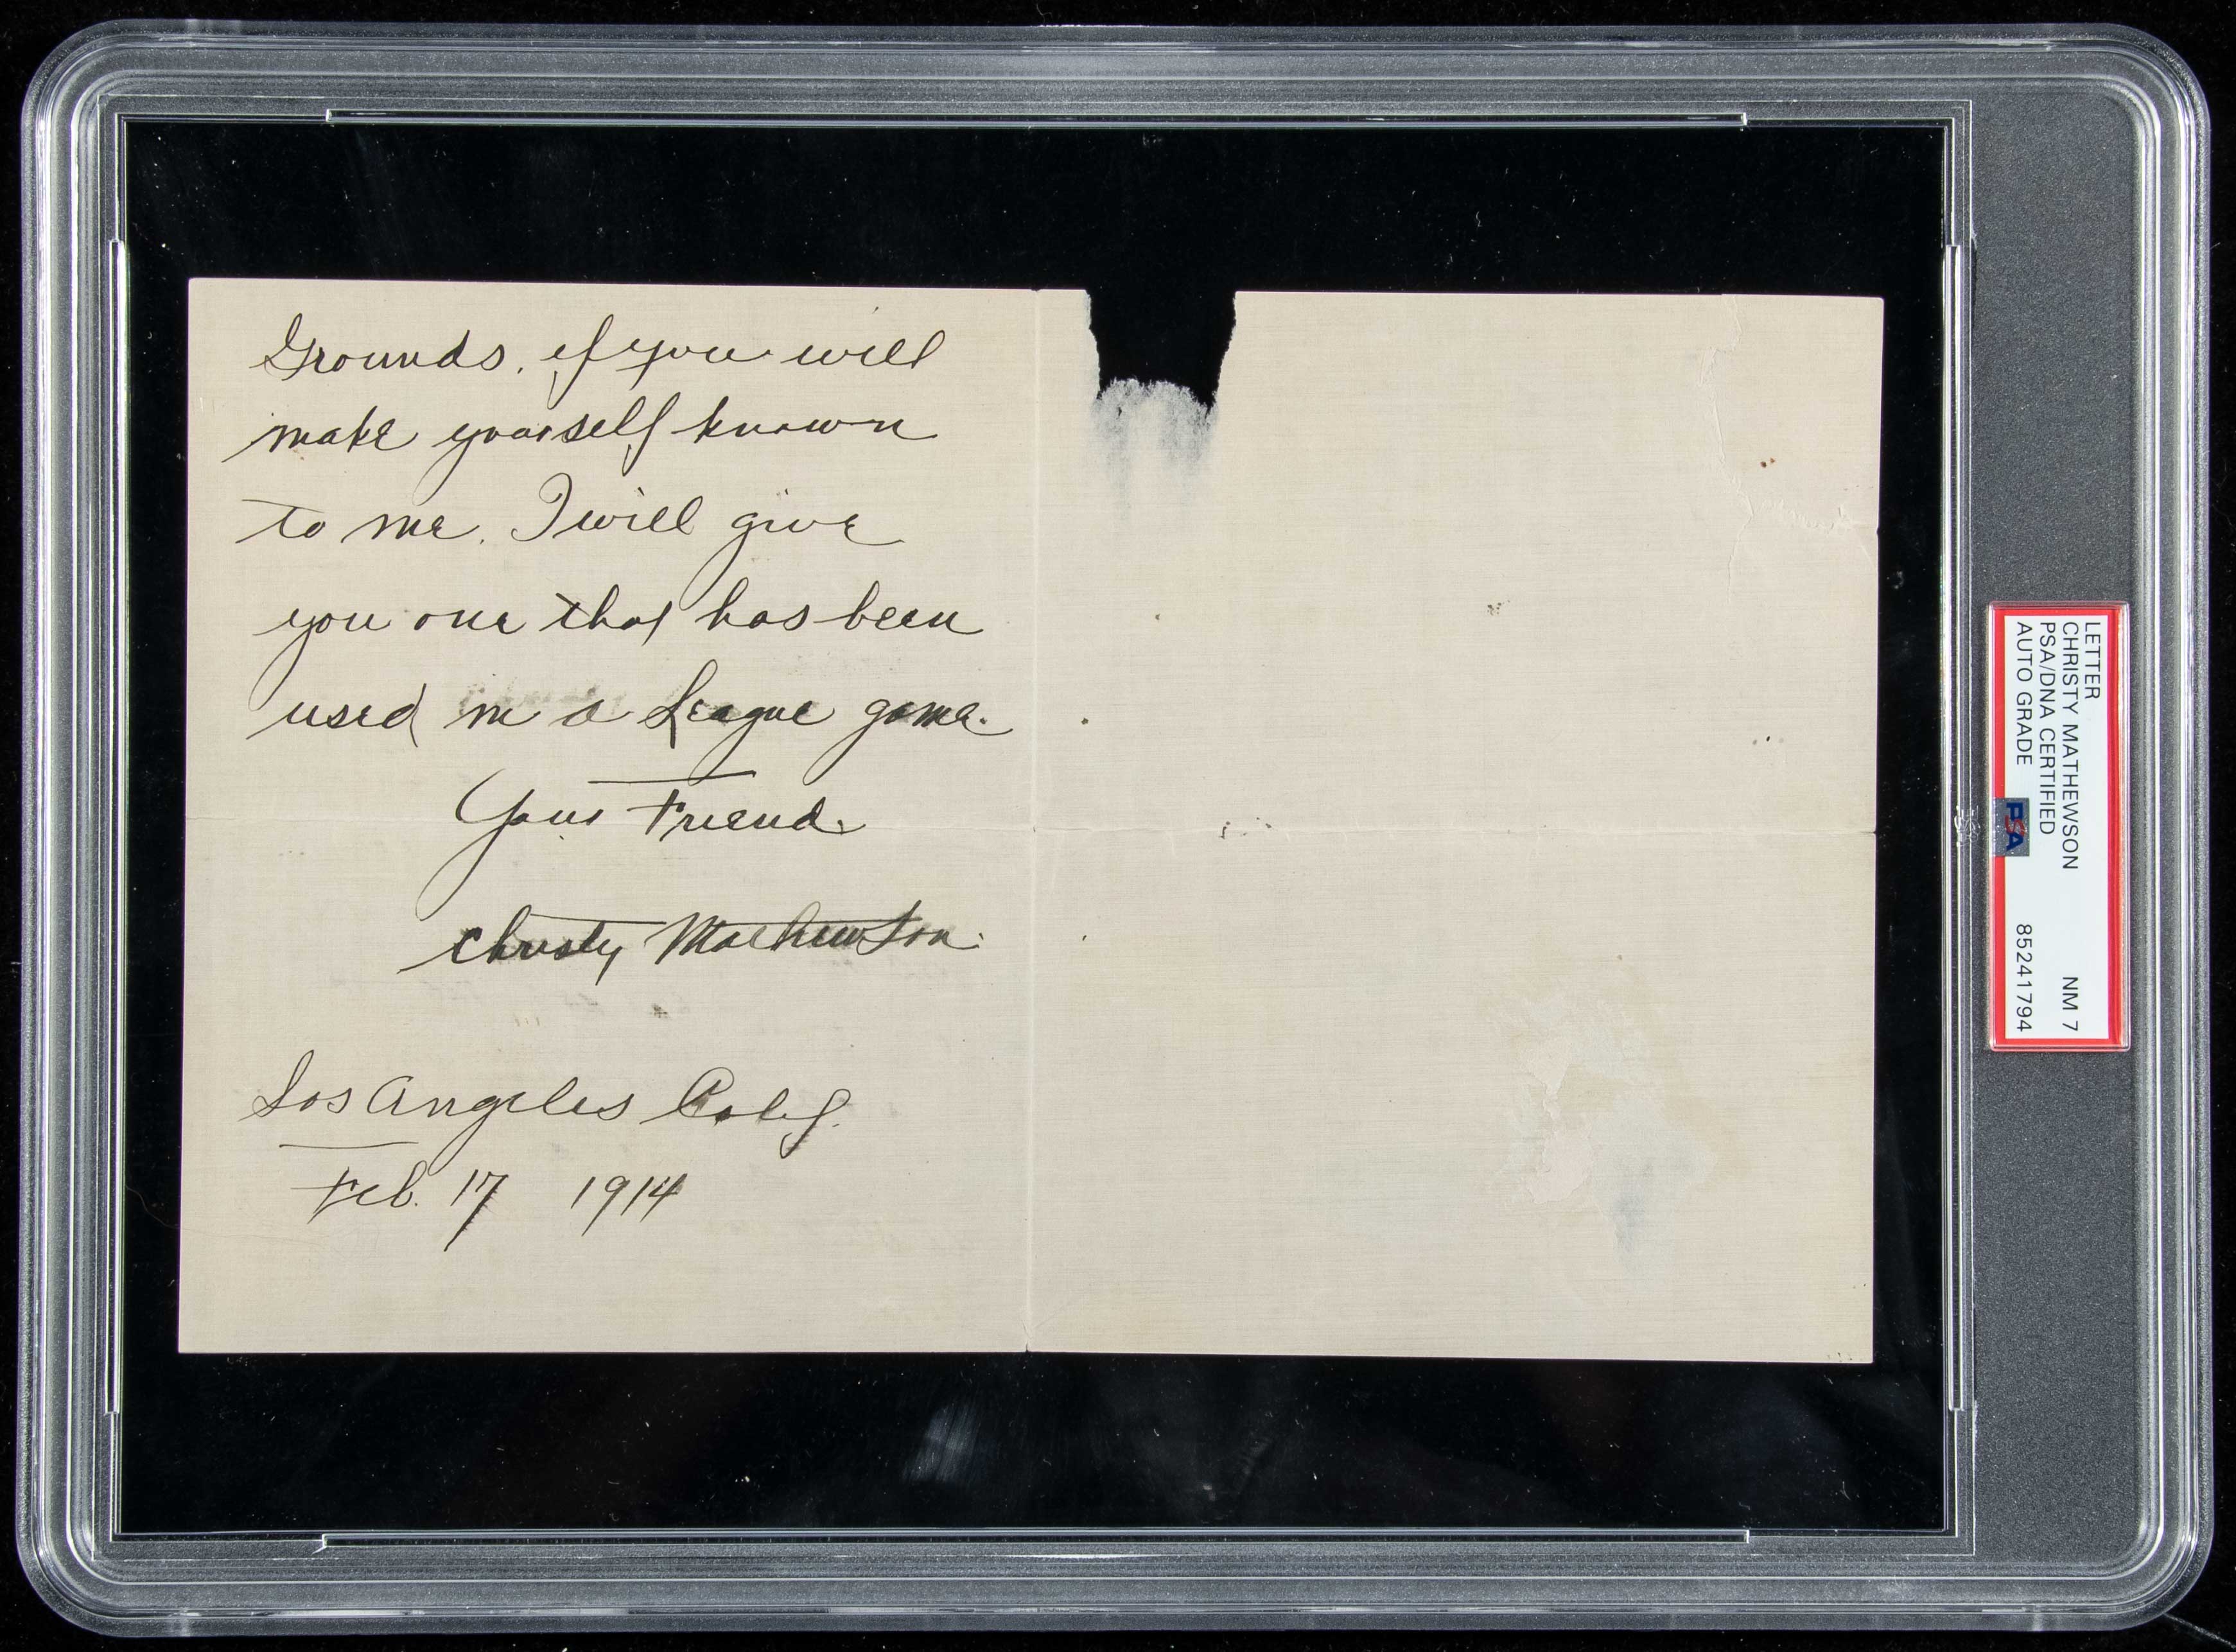 Grounds, if you will
make yourself known
to me. I will give
you one that has been
used in a League game.
Your Friend
Christy Mathewson
Los Angeles Calif.
Feb. 17 1914
LETTER
CHRISTY MATHEWSON NM 7
PSA/DNA CERTIFIED
AUTO GRADE 85241794
PSA